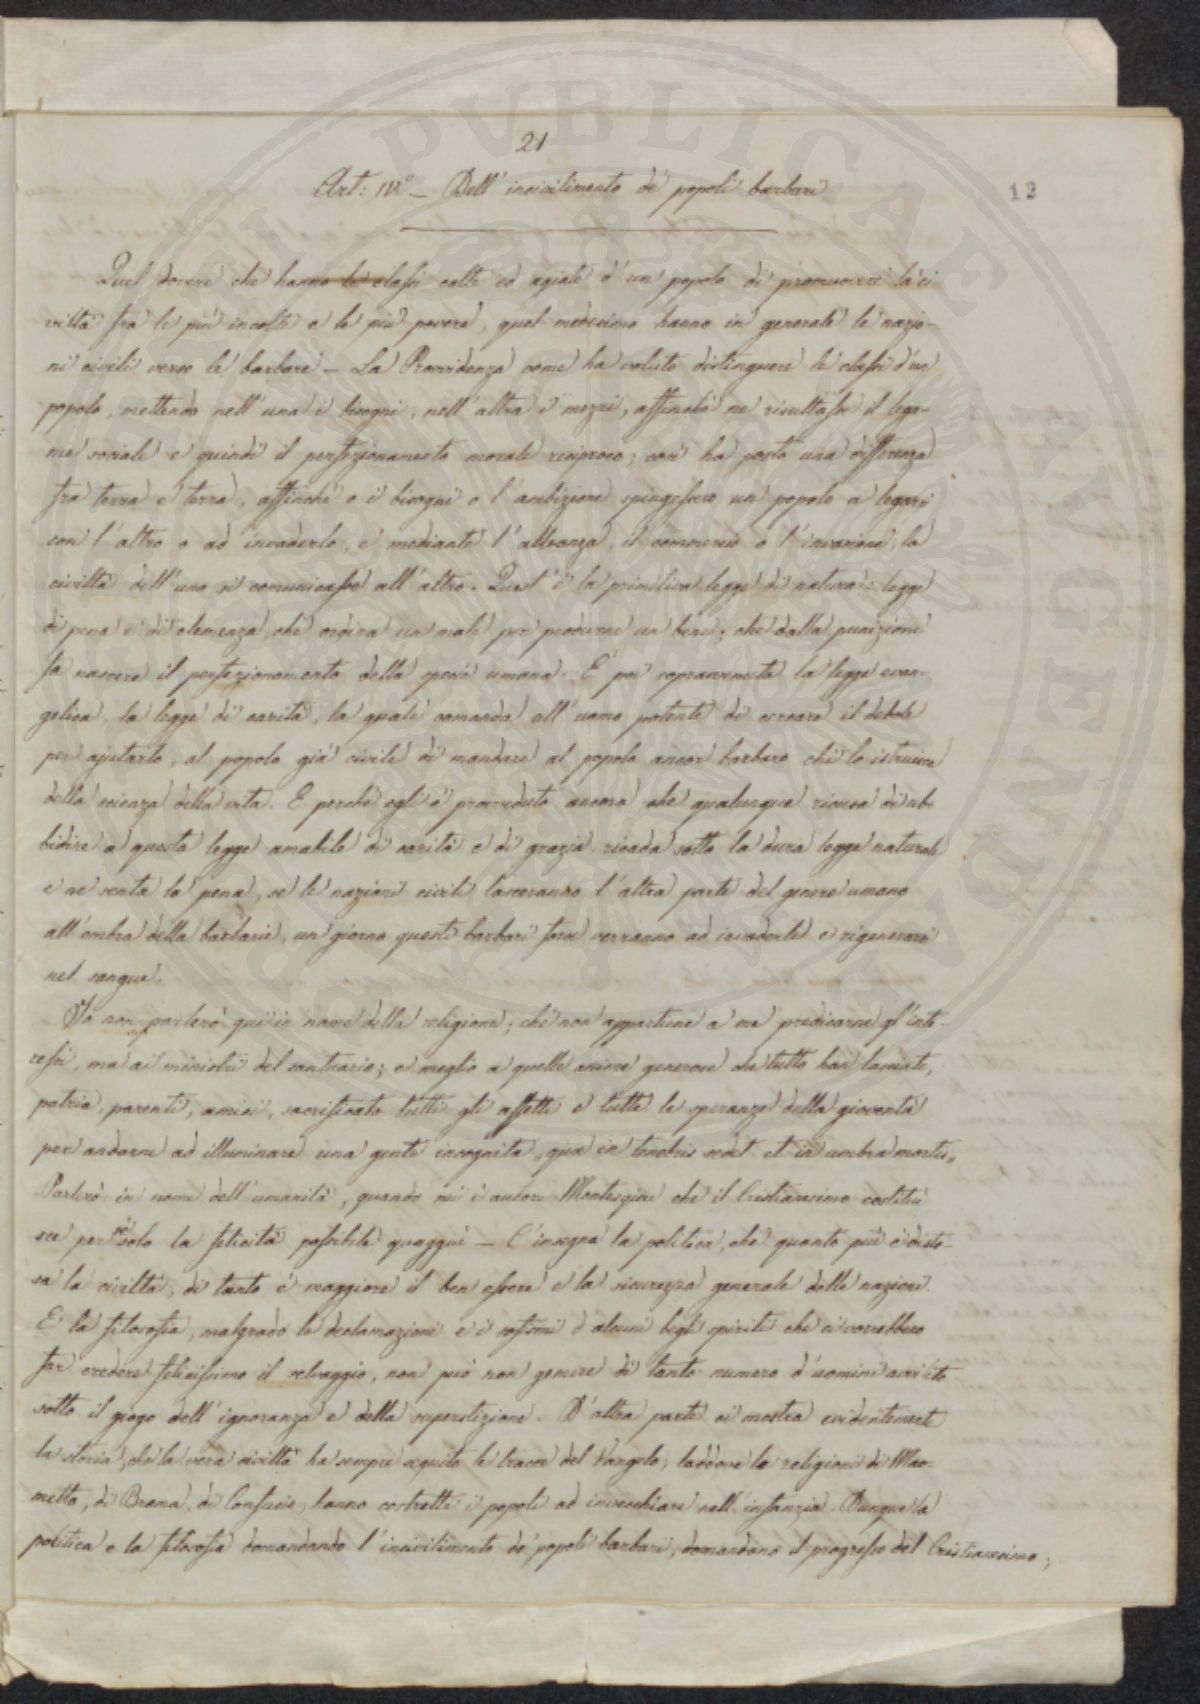 21
Art: IV.° — Dell' incivilimento de' popoli barbari
12
Quel dovere che hanno le classi colte ed agiate d'un popolo di promuovere la ci
viltà fra le più incolte e le più povere, quel medesimo hanno in generale le nazio-
ni civili verso le barbare — La Provvidenza come ha voluto distinguere le classi d'un
popolo, mettendo nell' una i bisogni, nell' altra i mezzi, affinchè ne risultasse il lega-
me sociale e quindi il perfezionamento morale reciproco; così ha posto una differenza
fra terra e terra, affinchè o i bisogni o l'ambizione spingessero un popolo a legarsi
con l'altro o ad invaderlo, e mediante l'alleanza, il commercio o l'invasione, la
civiltà dell' uno si comunicasse all' altro. Quest' è la primitiva legge di natura: legge
di pena e di clemenza, che ordina un male per produrne un bene; che dalla punizione
fa nascere il perfezionamento della specie umana. È poi sopravvenuta la legge evan-
gelica, la legge di carità, la quale comanda all' uomo potente di cercare il debole
per ajutarlo, al popolo già civile di mandare al popolo ancor barbaro chi lo istruisca
della scienza della vita. E perchè egli è provveduto ancora che qualunque ricusa di ub-
bidire a questa legge amabile di carità e di grazia, ricada sotto la dura legge naturale
e ne senta la pena, se le nazioni civili lasceranno l'altra parte del genere umano
all' ombra della barbarie, un giorno questi barbari forse verranno ad invaderle e rigenerarsi
nel sangue.
Io non parlerò qui in nome della religione; chè non appartiene a me predicarne gl' inte-
ressi, ma ai ministri del santuario; e meglio a quelle anime generose che tutto han lasciato,
patria, parenti, amici, sacrificato tutti gli affetti e tutte le speranze della gioventù
per andarne ad illuminare una gente incognita „quæ in tenebris sedet et in umbra mortis„
Parlerò in nome dell' umanità, quando mi è autore Montesquieu che il Cristianesimo costitui
sce per sè solo la felicità possibile quaggiù — C'insegna la politica, che quanto più è diste-
sa la civiltà, di tanto è maggiore il ben essere e la sicurezza generale delle nazioni.
E la filosofia, malgrado le declamazioni e i sofismi d' alcuni begli spiriti che ci vorrebbero
far credere felicissimo il selvaggio, non può non gemere di tanto numero d' uomini avvilito
sotto il giogo dell' ignoranza e della superstizione. D'altra parte ci mostra evidentemente
la storia, che la vera civiltà ha sempre seguito le tracce del Vangelo; laddove le religioni di Mao-
metto, di Brama, di Confucio, hanno costretti i popoli ad invecchiare nell' infanzia. Dunque la
politica e la filosofia domandando l'incivilimento de' popoli barbari, domandano il progresso del Cristianesimo;
PUBLICAE AVGENDAE